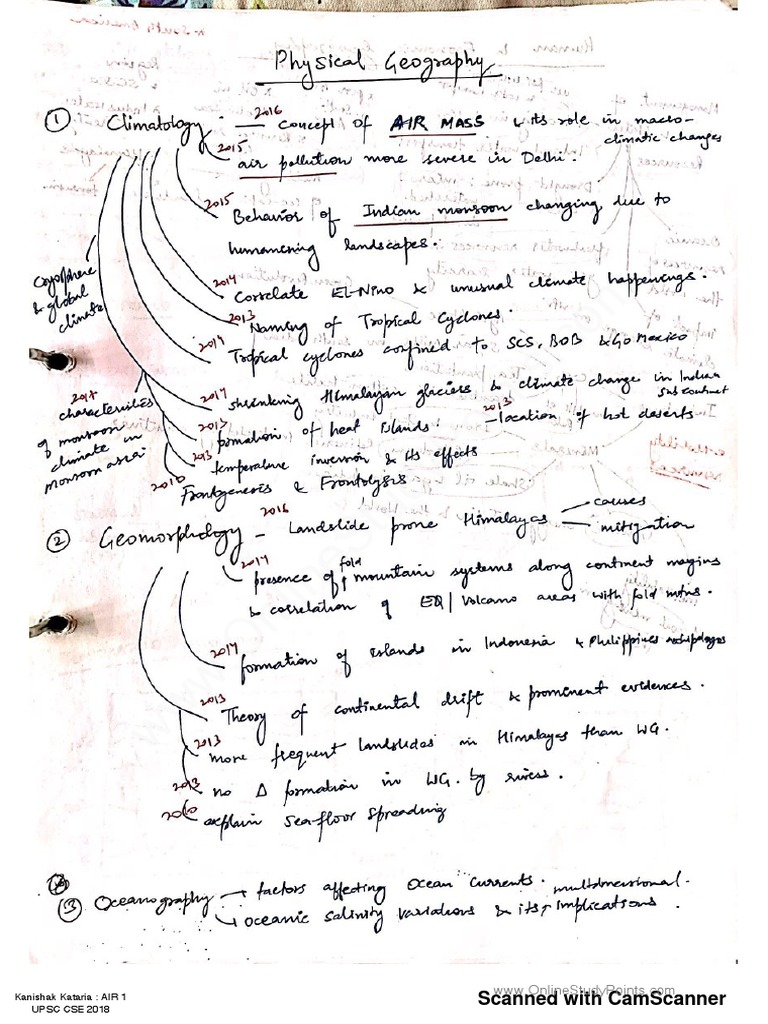 Physical Geography
① Climatology — 2016 concept of AIR MASS & its role in macro-
climatic changes
2015 air pollution more severe in Delhi.
2015 Behavior of Indian monsoon changing due to
humanering landscapes.
2014 Correlate EL-Nino & unusual climate happenings.
2013 Naming of Tropical Cyclones.
2014 Tropical cyclones confined to SCS, BOB & Go Mexico
cryosphere
& global
climate
2014 shrinking Himalayan glaciers & climate change in Indian
subcontinent
2013 formation of heat islands.
2013 – location of hot deserts
2013 temperature inversion & its effects
2010 Frontgenesis & Frontolysis
characteristics
of monsoon
climate in
monsoon asia
② Geomorphology – 2016 Landslide prone Himalayas
causes
mitigation
2014 presence of fold mountain systems along continent margins
& correlation of EQ/Volcano areas with fold mtns.
2014 formation of islands in Indonesia & Philippines archipelagos
2013 Theory of continental drift & prominent evidences.
2013 more frequent landslides in Himalayas than WG.
2013 no Δ formation in WG. by rivers.
explain sea-floor spreading
③ Oceanography → factors affecting Ocean currents.
→ oceanic salinity variations & its multidimensional implications.
Kanishak Kataria : AIR 1
UPSC CSE 2018
www.OnlineStudyPoints.com
Scanned with CamScanner